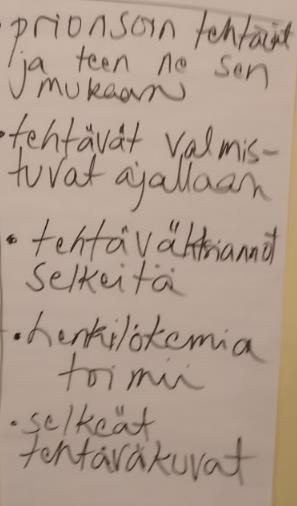 • prionsoin tehtävät
ja teen ne sen
mukaan
• tehtävät valmis-
tuvat ajallaan
• tehtävä
selkeitä
• henkilökemia
toimii
• selkeät
tehtäväkuvat